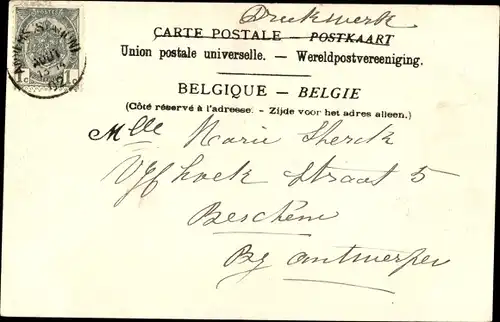 Drukwerk
CARTE POSTALE — POSTKAART
Union postale universelle. — Wereldpostvereeniging.
BELGIQUE — BELGIE
(Côté réservé à l'adresse. - Zijde voor het adres alleen.)
Mlle Marie Sterck
Vyfhoek Straat 5
Berchem
By antwerpen
AOUT
1c 1c